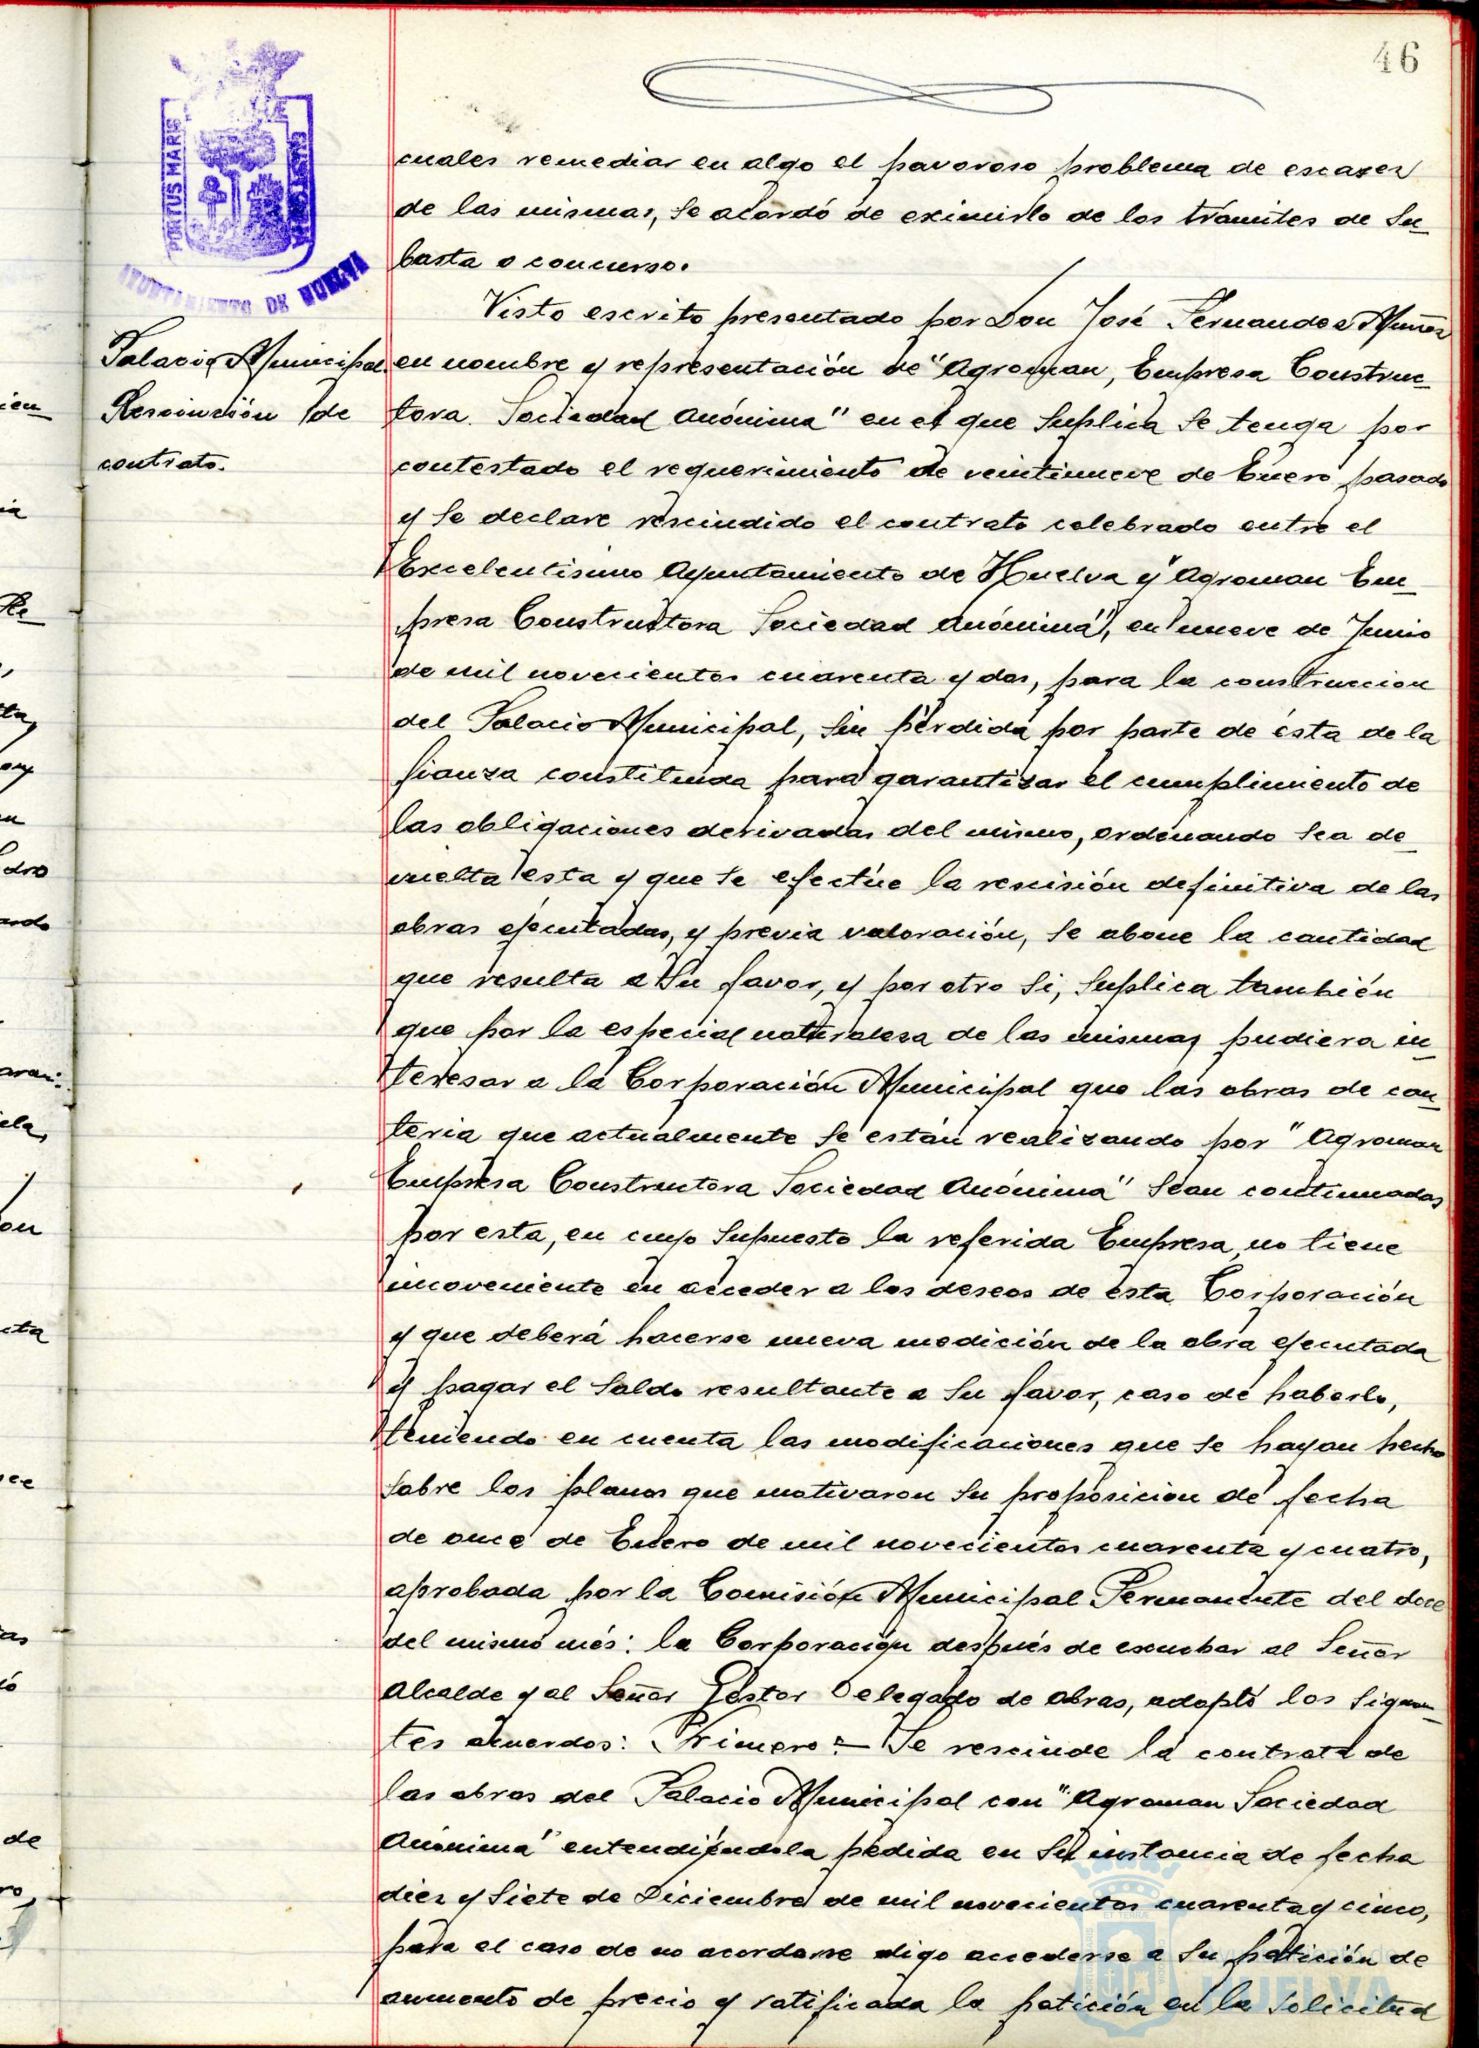 46
PORTUS MARIS
AYUNTAMIENTO DE HUELVA
Palacio Municipal.
Rescinción de
contrato.
cuales remediar en algo el pavoroso problema de escasez
de las mismas, se acordó de eximirlo de los trámites de su-
basta o concurso.
Visto escrito presentado por Don José Fernandez Muñoz
en nombre y representación de "Agroman, Empresa Construc-
tora. Sociedad Anónima" en el que suplica se tenga por
contestado el requerimiento de veintinueve de Enero pasado
y se declare rescindido el contrato celebrado entre el
Excelentisimo Ayuntamiento de Huelva y "Agroman Em-
presa Constructora Sociedad Anónima", en nueve de Junio
de mil novecientos cuarenta y dos, para la construccion
del Palacio Municipal, sin pérdida por parte de ésta de la
fianza constituida para garantizar el cumplimiento de
las obligaciones derivadas del mismo, ordenando sea de-
vuelta esta y que se efectúe la rescisión definitiva de las
obras ejecutadas, y previa valoración, se abone la cantidad
que resulta a su favor, y por otro si, suplica también
que por la especial naturaleza de las mismas pudiera in-
teresar a la Corporación Municipal que las obras de can-
teria que actualmente se están realizando por "Agroman
Empresa Constructora Sociedad Anónima" sean continuadas
por esta, en cuyo supuesto la referida Empresa, no tiene
incoveniente en acceder a los deseos de ésta Corporación
y que deberá hacerse nueva medición de la obra ejecutada
y pagar el saldo resultante a su favor, caso de haberlo,
teniendo en cuenta las modificaciones que se hayan hecho
sobre los planos que motivaron su proposicion de fecha
de once de Enero de mil novecientos cuarenta y cuatro,
aprobada por la Comisión Municipal Permanente del doce
del mismo més: la Corporación después de escuchar al Señor
Alcalde y al Señor Gestor Delegado de obras, adoptó los siguien-
tes acuerdos: Primero:- Se rescinde la contrata de
las obras del Palacio Municipal con "Agroman Sociedad
Anónima" entendiéndola pedida en su instancia de fecha
diez y siete de Diciembre de mil novecientos cuarenta y cinco,
para el caso de no acordarse digo accederse a su petición de
aumento de precio y ratificada la petición en la solicitud
HUELVA